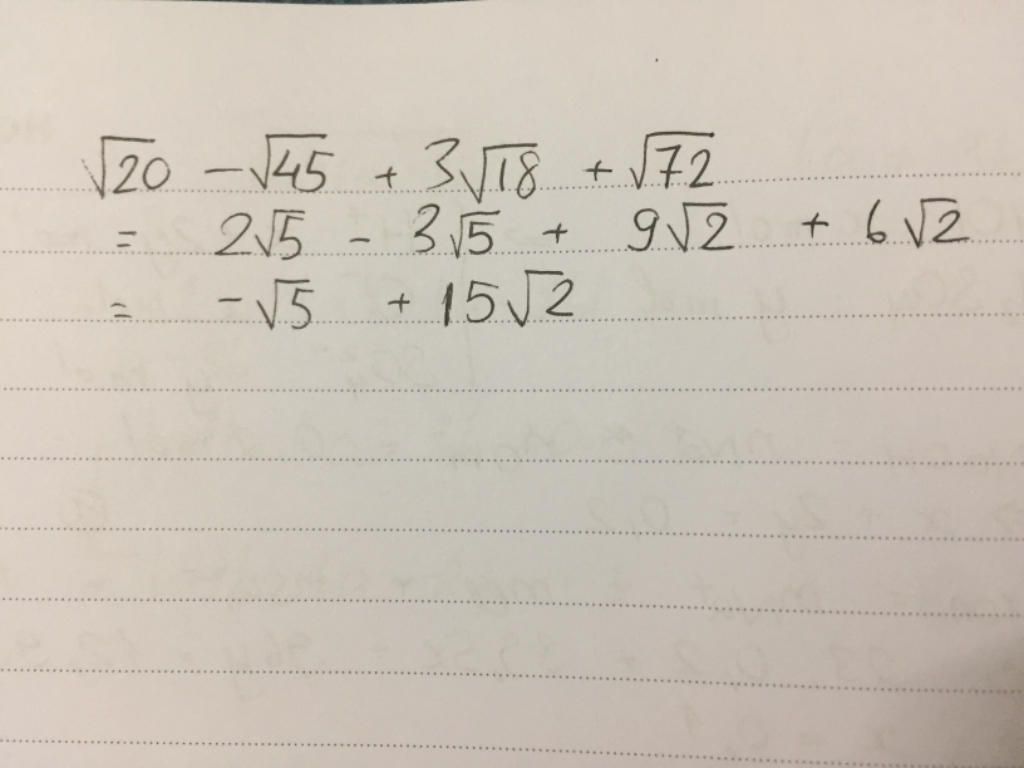 √20 - √45 + 3√18 + √72
= 2√5 - 3√5 + 9√2 + 6√2
= -√5 + 15√2